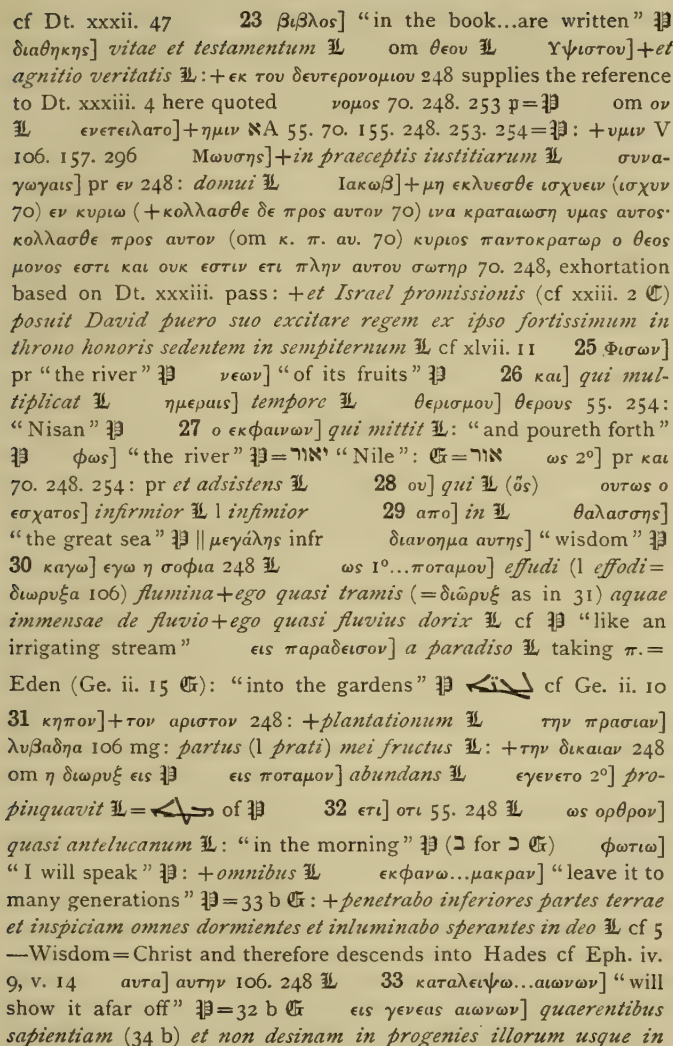 cf Dt. xxxii. 47 23 βιβλος] “in the book...are written” 𝔓
διαθηκης] vitae et testamentum 𝕷 om θεου 𝕷 Υψιστου]+et
agnitio veritatis 𝕷:+εκ του δευτερονομιου 248 supplies the reference
to Dt. xxxiii. 4 here quoted νομος 70. 248. 253 𝔭=𝔓 om ον
𝕷 ενετειλατο]+ημιν ℵA 55. 70. 155. 248. 253. 254=𝔓: +υμιν V
106. 157. 296 Μωυσης]+in praeceptis iustitiarum 𝕷 συνα-
γωγαις] pr εν 248: domui 𝕷 Ιακωβ]+μη εκλυεσθε ισχυειν (ισχυν
70) εν κυριω (+κολλασθε δε προς αυτον 70) ινα κραταιωση υμας αυτος·
κολλασθε προς αυτον (om κ. π. αυ. 70) κυριος παντοκρατωρ ο θεος
μονος εστι και ουκ εστιν ετι πλην αυτου σωτηρ 70. 248, exhortation
based on Dt. xxxiii. pass: +et Israel promissionis (cf xxiii. 2 ℭ)
posuit David puero suo excitare regem ex ipso fortissimum in
throno honoris sedentem in sempiternum 𝕷 cf xlvii. 11 25 Φισων]
pr “the river” 𝔓 νεων] “of its fruits” 𝔓 26 και] qui mul-
tiplicat 𝕷 ημεραις] tempore 𝕷 θερισμου] θερους 55. 254:
“Nisan” 𝔓 27 ο εκφαινων] qui mittit 𝕷: “and poureth forth”
𝔓 φως] “the river” 𝔓=יאור “Nile”: 𝔊=אור ως 2º] pr και
70. 248. 254: pr et adsistens 𝕷 28 ου] qui 𝕷 (ὅς) ουτως ο
εσχατος] infirmior 𝕷 l infimior 29 απο] in 𝕷 θαλασσης]
“the great sea” 𝔓 || μεγάλης infr διανοημα αυτης] “wisdom” 𝔓
30 καγω] εγω η σοφια 248 𝕷 ως 1º...ποταμου] effudi (l effodi=
διωρυξα 106) flumina+ego quasi tramis (=διῶρυξ as in 31) aquae
immensae de fluvio+ego quasi fluvius dorix 𝕷 cf 𝔓 “like an
irrigating stream” εις παραδεισον] a paradiso 𝕷 taking π.=
Eden (Ge. ii. 15 𝔊): “into the gardens” 𝔓 cf Ge. ii. 10
31 κηπον]+τον αριστον 248: +plantationum 𝕷 την πρασιαν]
λυβαδηα 106 mg: partus (l prati) mei fructus 𝕷: +την δικαιαν 248
om η διωρυξ εις 𝔓 εις ποταμον] abundans 𝕷 εγενετο 2º] pro-
pinquavit 𝕷= of 𝔓 32 ετι] οτι 55. 248 𝕷 ως ορθρον]
quasi antelucanum 𝕷: “in the morning” 𝔓 (ב for כ 𝔊) φωτιω]
“I will speak” 𝔓: +omnibus 𝕷 εκφανω...μακραν] “leave it to
many generations” 𝔓=33 b 𝔊: +penetrabo inferiores partes terrae
et inspiciam omnes dormientes et inluminabo sperantes in deo 𝕷 cf 5
—Wisdom=Christ and therefore descends into Hades cf Eph. iv.
9, v. 14 αυτα] αυτην 106. 248 𝕷 33 καταλειψω...αιωνων] “will
show it afar off” 𝔓=32 b 𝔊 εις γενεας αιωνων] quaerentibus
sapientiam (34 b) et non desinam in progenies illorum usque in